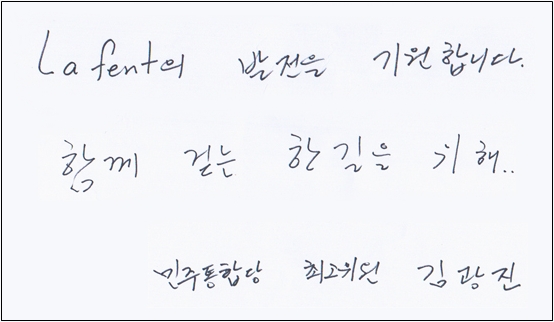 Lafent의 발전을 기원합니다.
함께 걷는 한길을 위해..
민주통합당 최고위원 김광진